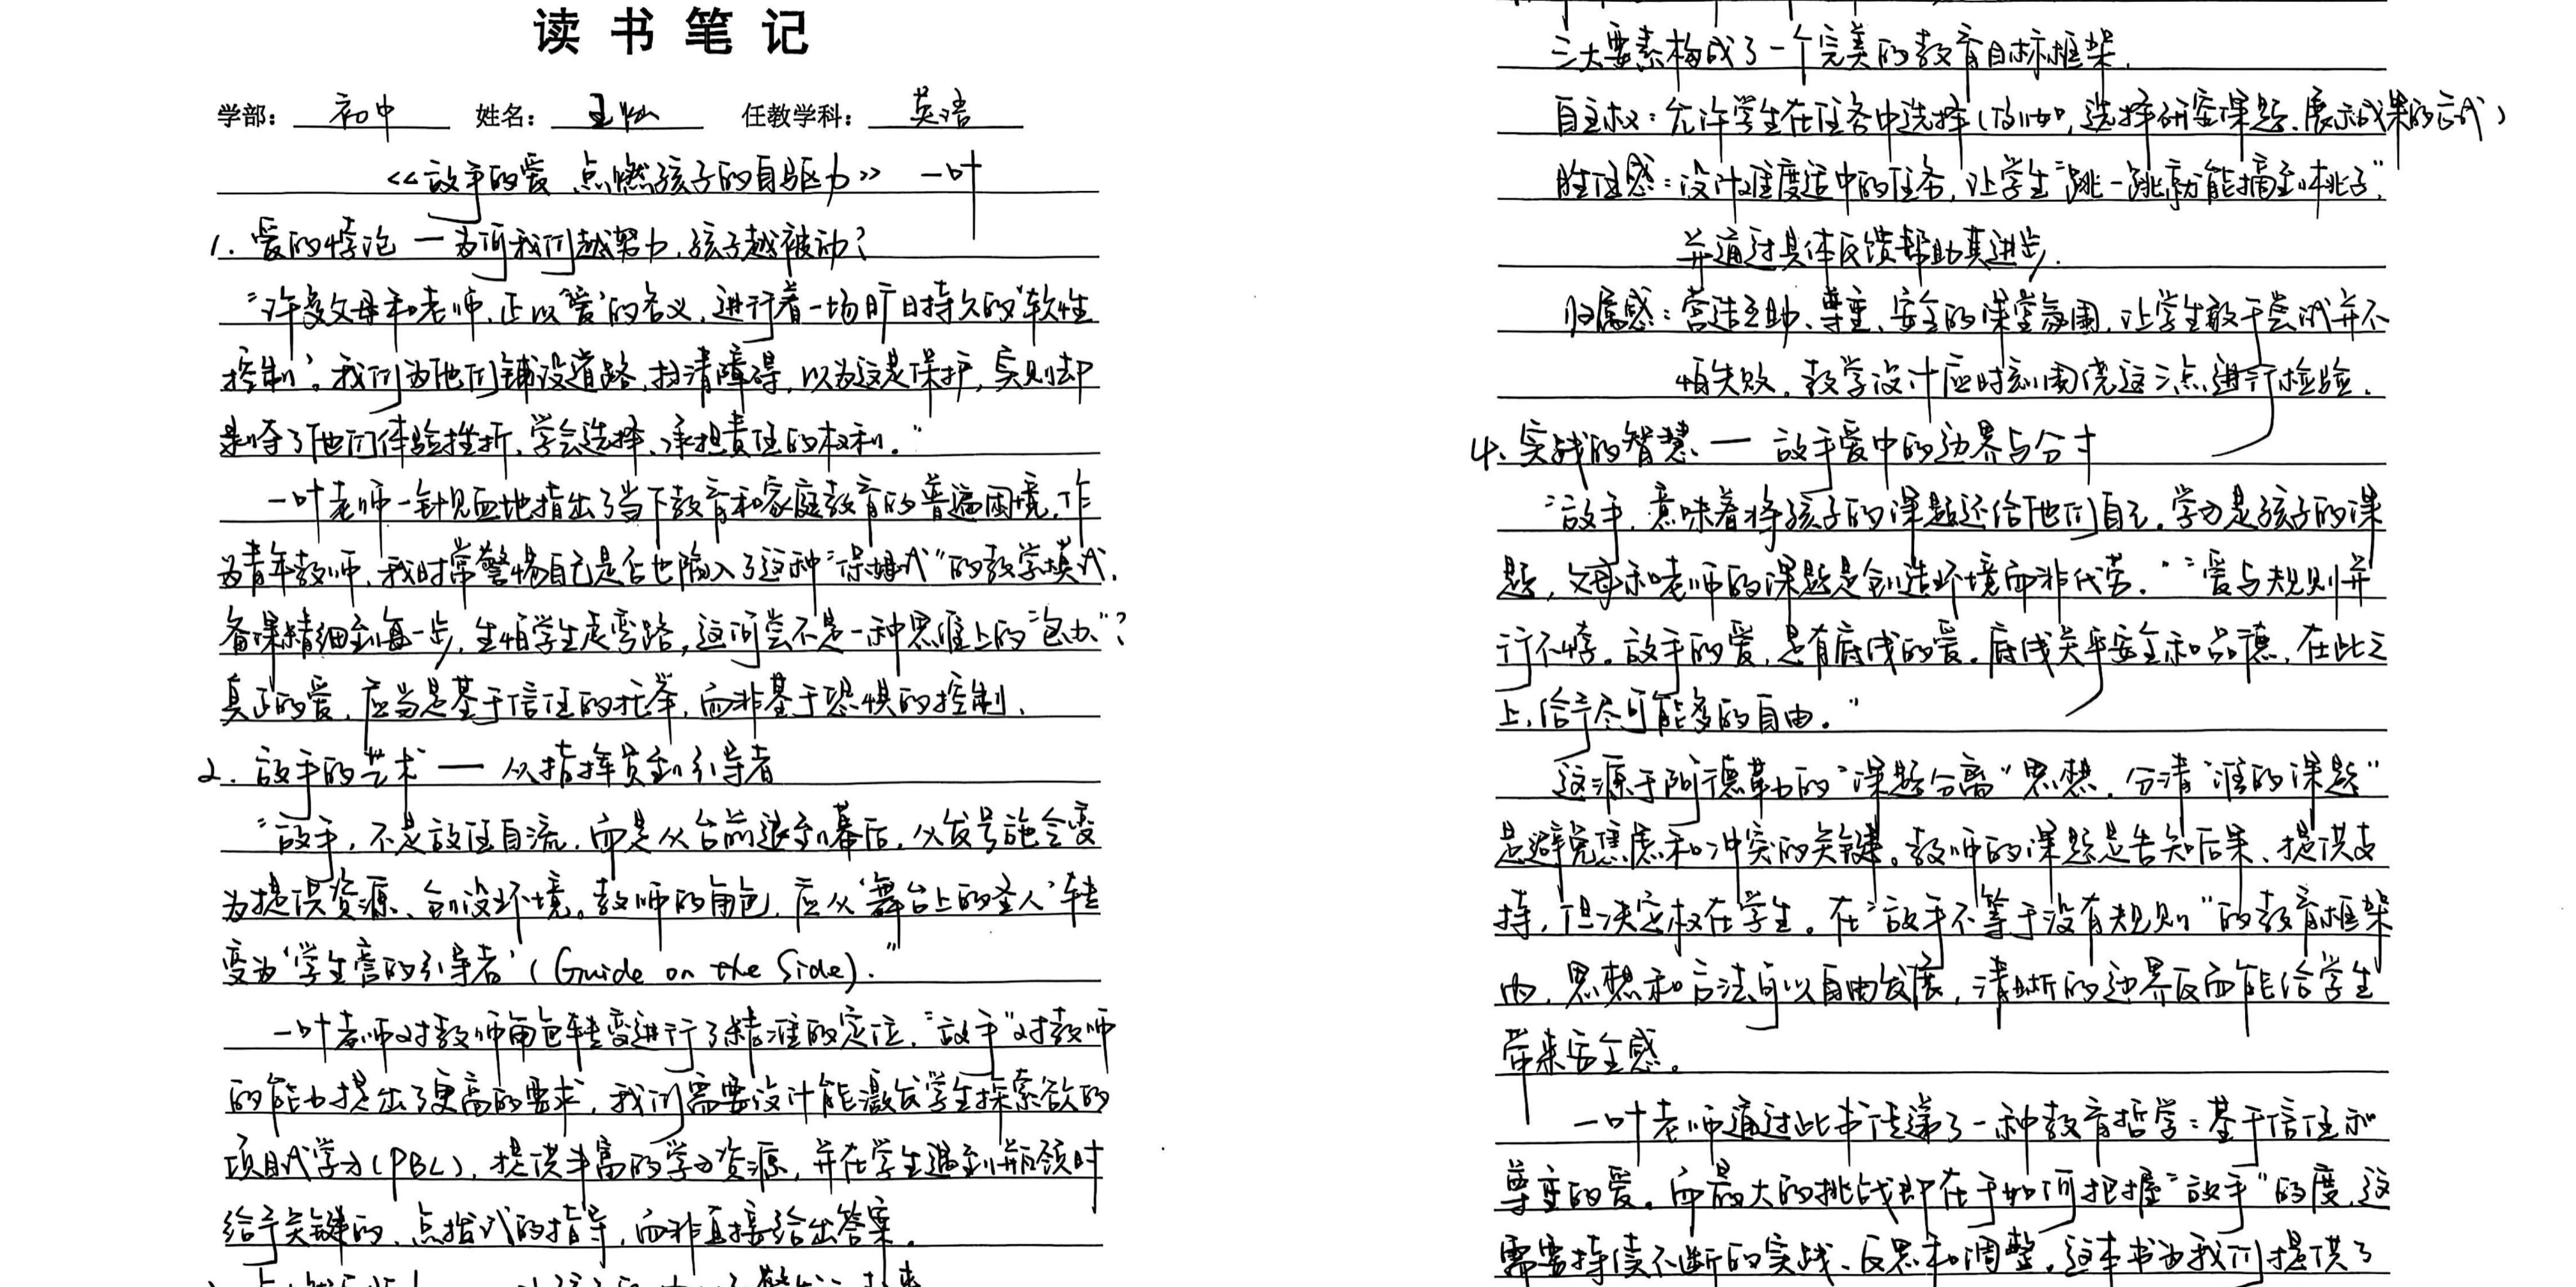 读书笔记
学部： 初中 姓名： 王灿 任教学科： 英语
《放手的爱 点燃孩子的自驱力》 一叶
1. 爱的悖论 — 为何我们越努力，孩子越被动？
“许多父母和老师，正以‘爱’的名义，进行着一场旷日持久的‘软性
控制’。我们为他们铺设道路，扫清障碍，以为这是保护，实则却
剥夺了他们体验挫折、学会选择、承担责任的权利。”
一叶老师一针见血地指出了当下教育和家庭教育的普遍困境，作
为青年教师，我时常警惕自己是否也陷入了这种“保姆式”的教学模式，
备课精细到每一步，生怕学生走弯路，这何尝不是一种思维上的“包办”？
真正的爱，应当是基于信任的托举，而非基于恐惧的控制。
2. 放手的艺术 — 从指挥员到引导者
“放手，不是放任自流，而是从台前退到幕后，从发号施令变
为提供资源、创设环境。教师的角色，应从‘舞台上的圣人’转
变为‘学生旁的引导者’（Guide on the Side）.”
一叶老师对教师角色转变进行了精准的定位，“放手”对教师
的能力提出了更高的要求，我们需要设计能激发学生探索欲的
项目式学习(PBL)，提供丰富的学习资源，并在学生遇到瓶颈时
给予关键的、点拨式的指导，而非直接给出答案。
三大要素构成了一个完美的教育目标框架.
自主权：允许学生在任务中选择（例如，选择研究课题、展示成果的方式）
胜任感：设计难度适中的任务，让学生“跳一跳就能摘到桃子”，
并通过具体反馈帮助其进步.
归属感：营造互助、尊重、安全的课堂氛围，让学生敢于尝试并不
怕失败。教学设计应时刻围绕这三点进行检验.
4. 实战的智慧 — 放手爱中的边界与分寸
“放手，意味着将孩子的课题还给他们自己。学习是孩子的课
题，父母和老师的课题是创造环境而非代劳.”“爱与规则并
行不悖。放手的爱，是有底线的爱。底线关乎安全和品德，在此之
上，给予尽可能多的自由。”
这源于阿德勒的“课题分离”思想，分清“谁的课题”
是避免焦虑和冲突的关键。教师的课题是告知后果、提供支
持，但决定权在学生。在“放手不等于没有规则”的教育框架
内，思想和方法可以自由发展，清晰的边界反而能给学生
带来安全感。
一叶老师通过此书传递了一种教育哲学：基于信任和
尊重的爱。而最大的挑战即在于如何把握“放手”的度，这
需要持续不断的实践、反思和调整。这本书为我们提供了